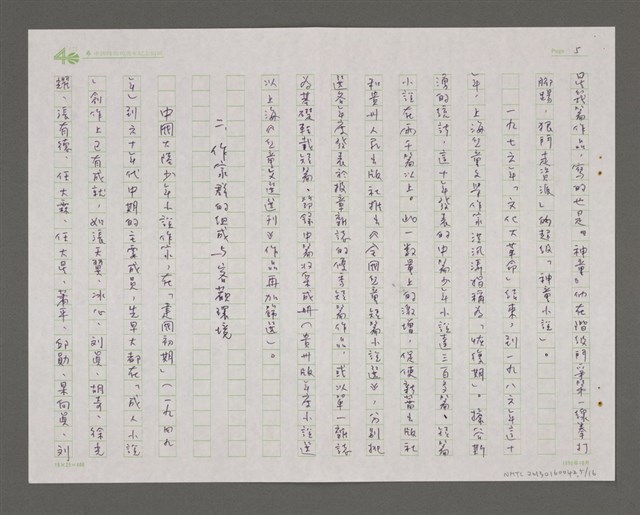 Page: 5
是幾篇作品,寫的也是「神童」們在階級鬥爭第一線拳打
腳踢、狠鬥走資派」的超級「神童小說」。
一九七六年「文化大革命」結束,到一九八六年這十
年,上海兒童文學作家洪汛濤指稱為「恢復期」。據公斯
湧的統計,這十年發表的中篇少年小說達三百多篇。短篇
小說在兩千篇以上。此一數量上的激增,促使新蕾出版社
和貴州人民出版社推出《全國兒童短篇小說選》,分別挑
選各年度發表於報章雜誌的優秀短篇作品,或以單一雜誌
為基礎轉載短篇。節錄中篇收集成冊(貴州版年度小說選
以上海《兒童文學選刊》作品再加篩選)。
二、作家群的組成與客觀環境
中國大陸少年小說作家,在「建國初期」(一九四九
年)到六十年代中期的主要成員,先早大都在「成人小說
」創作上已有成就,如張天翼、冰心、劉真、胡奇、徐光
耀、張有德、任大霖、任大星、蕭平、邱勛、杲向真、劉
18×25=450
NMTL 20130120043,5/16